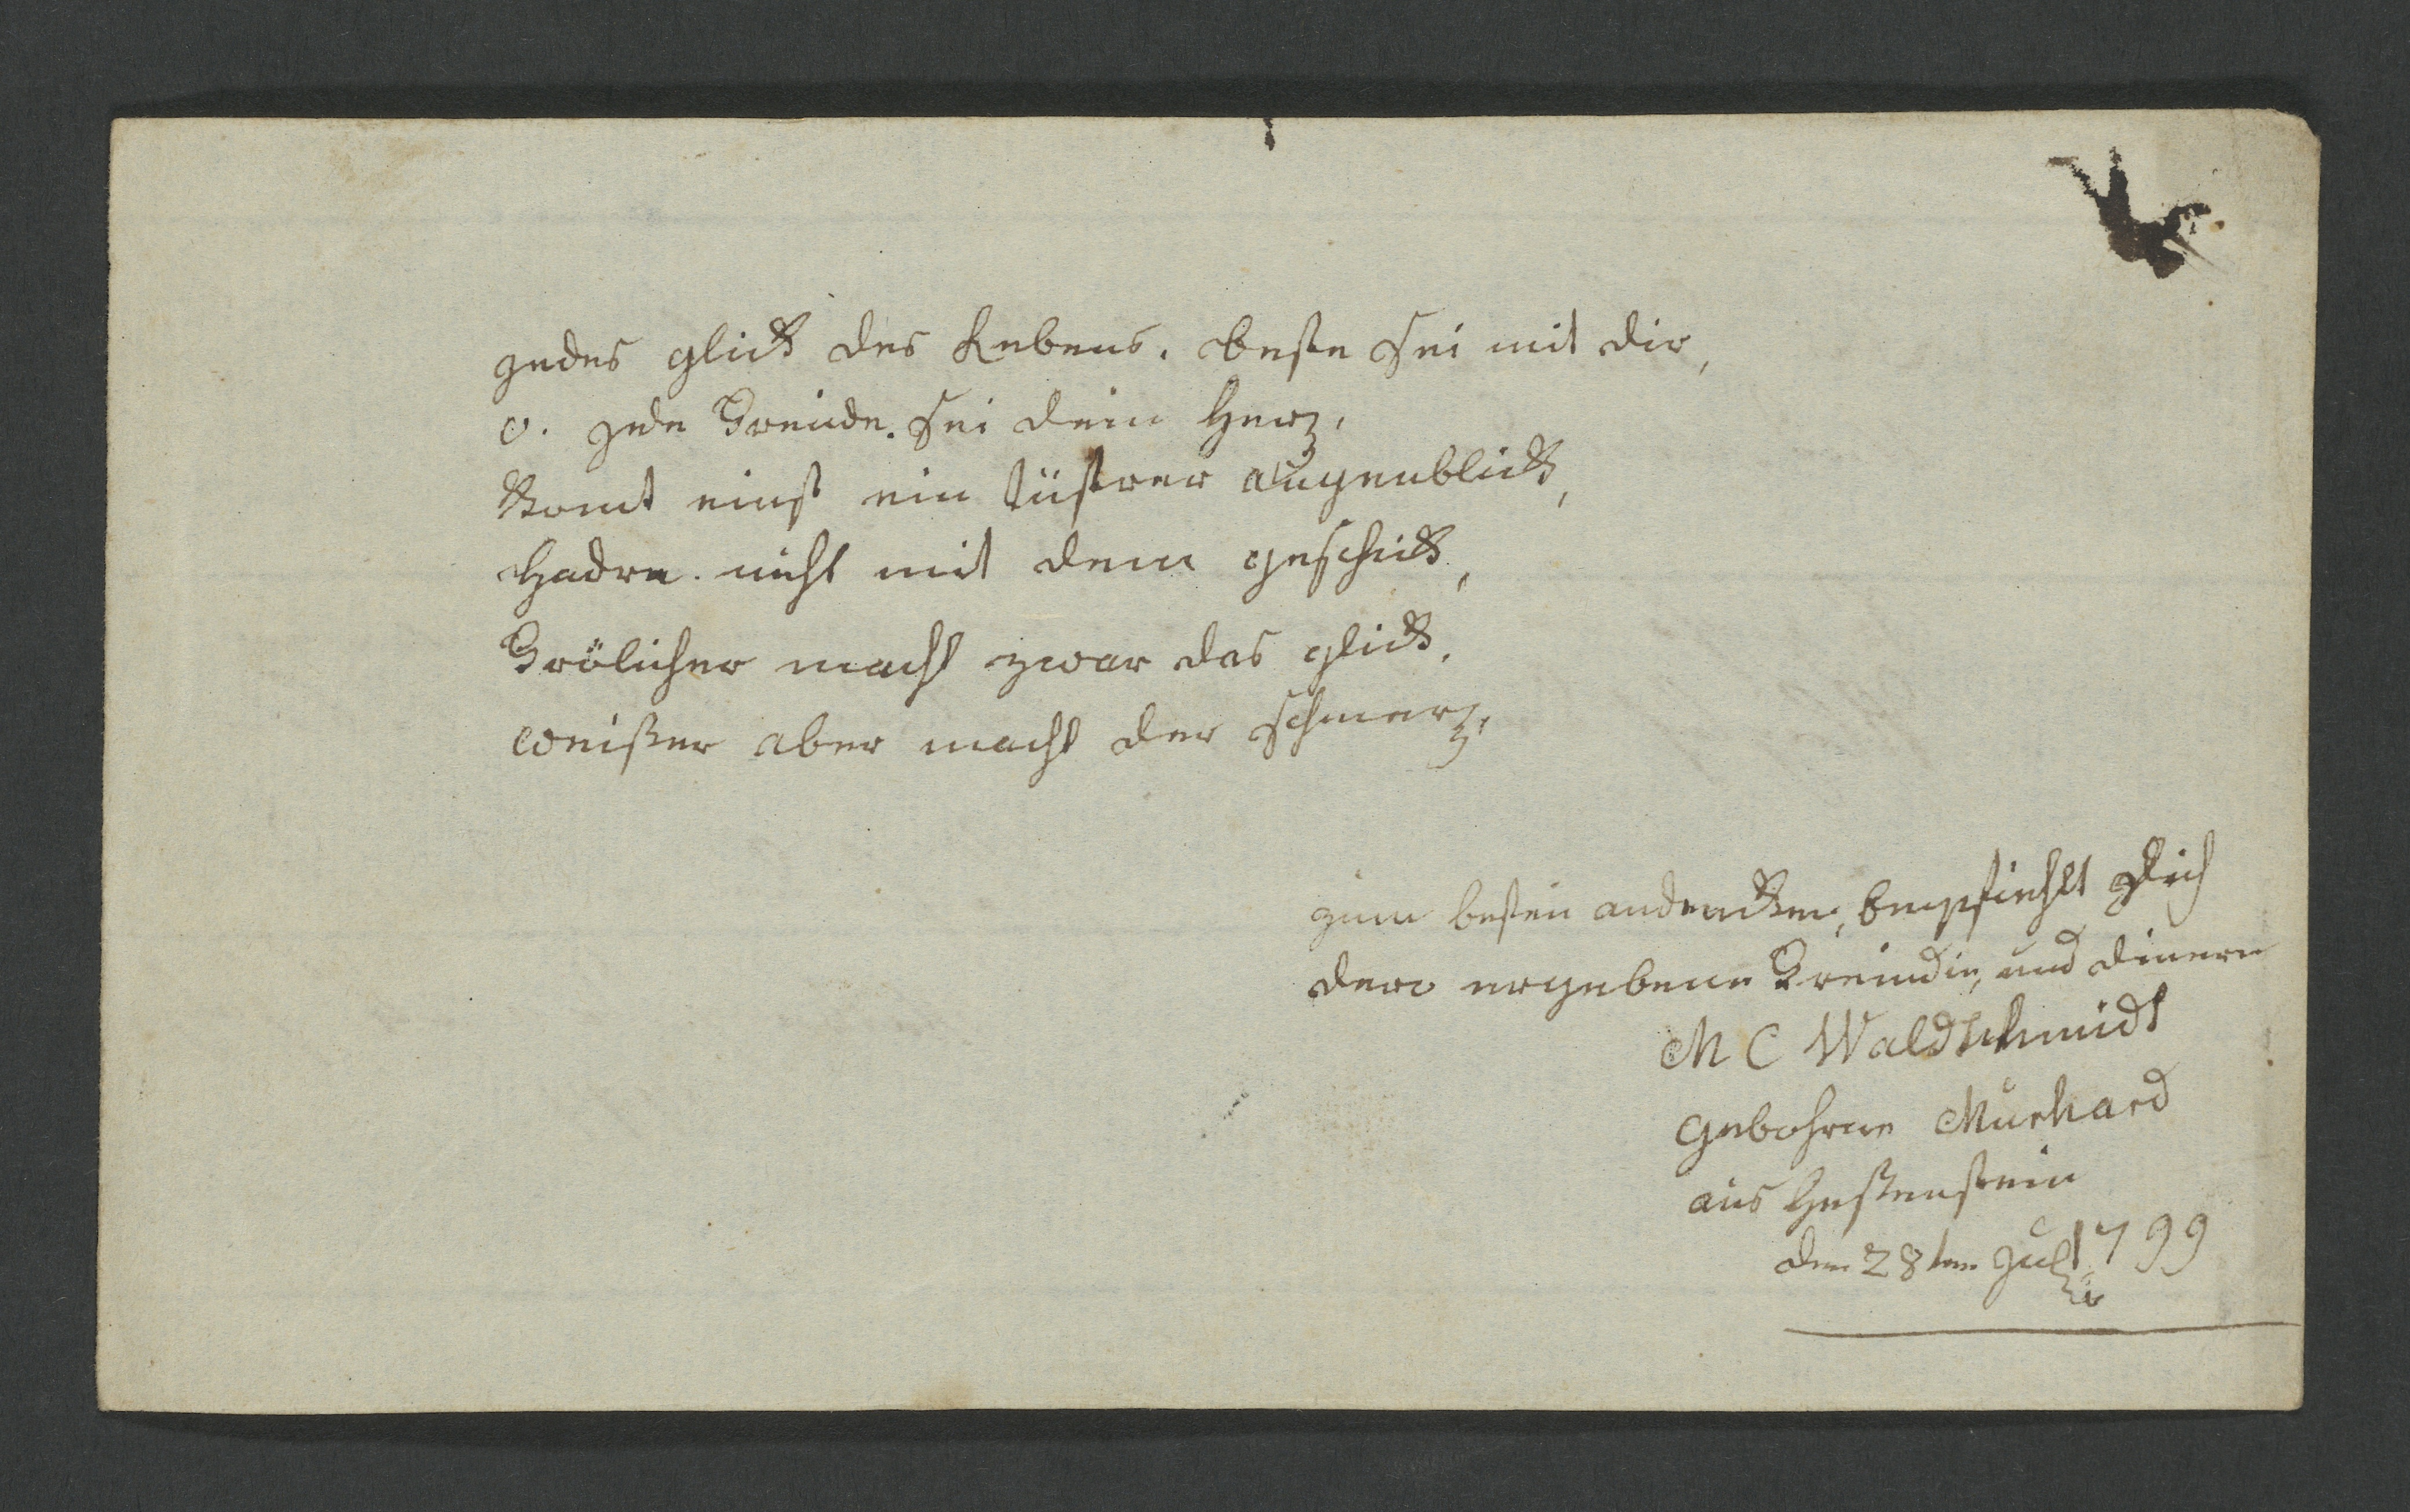 jedes glick des Lebens. beste sei mit dir,
o. jede Freinde. sei dein Herz,
Komt einst ein tüstrer augenblick,
Hadre. nicht mit dem geschick,
Frölicher macht zwar das glick,
weißer aber macht der schmerz,
zum besten andencken, Empfiehlt sich
dero ergebene Freindin, und dinern
M C Waldschmidt
gebohrne Murhard
aus Heßenstein
den 28ten July 1799